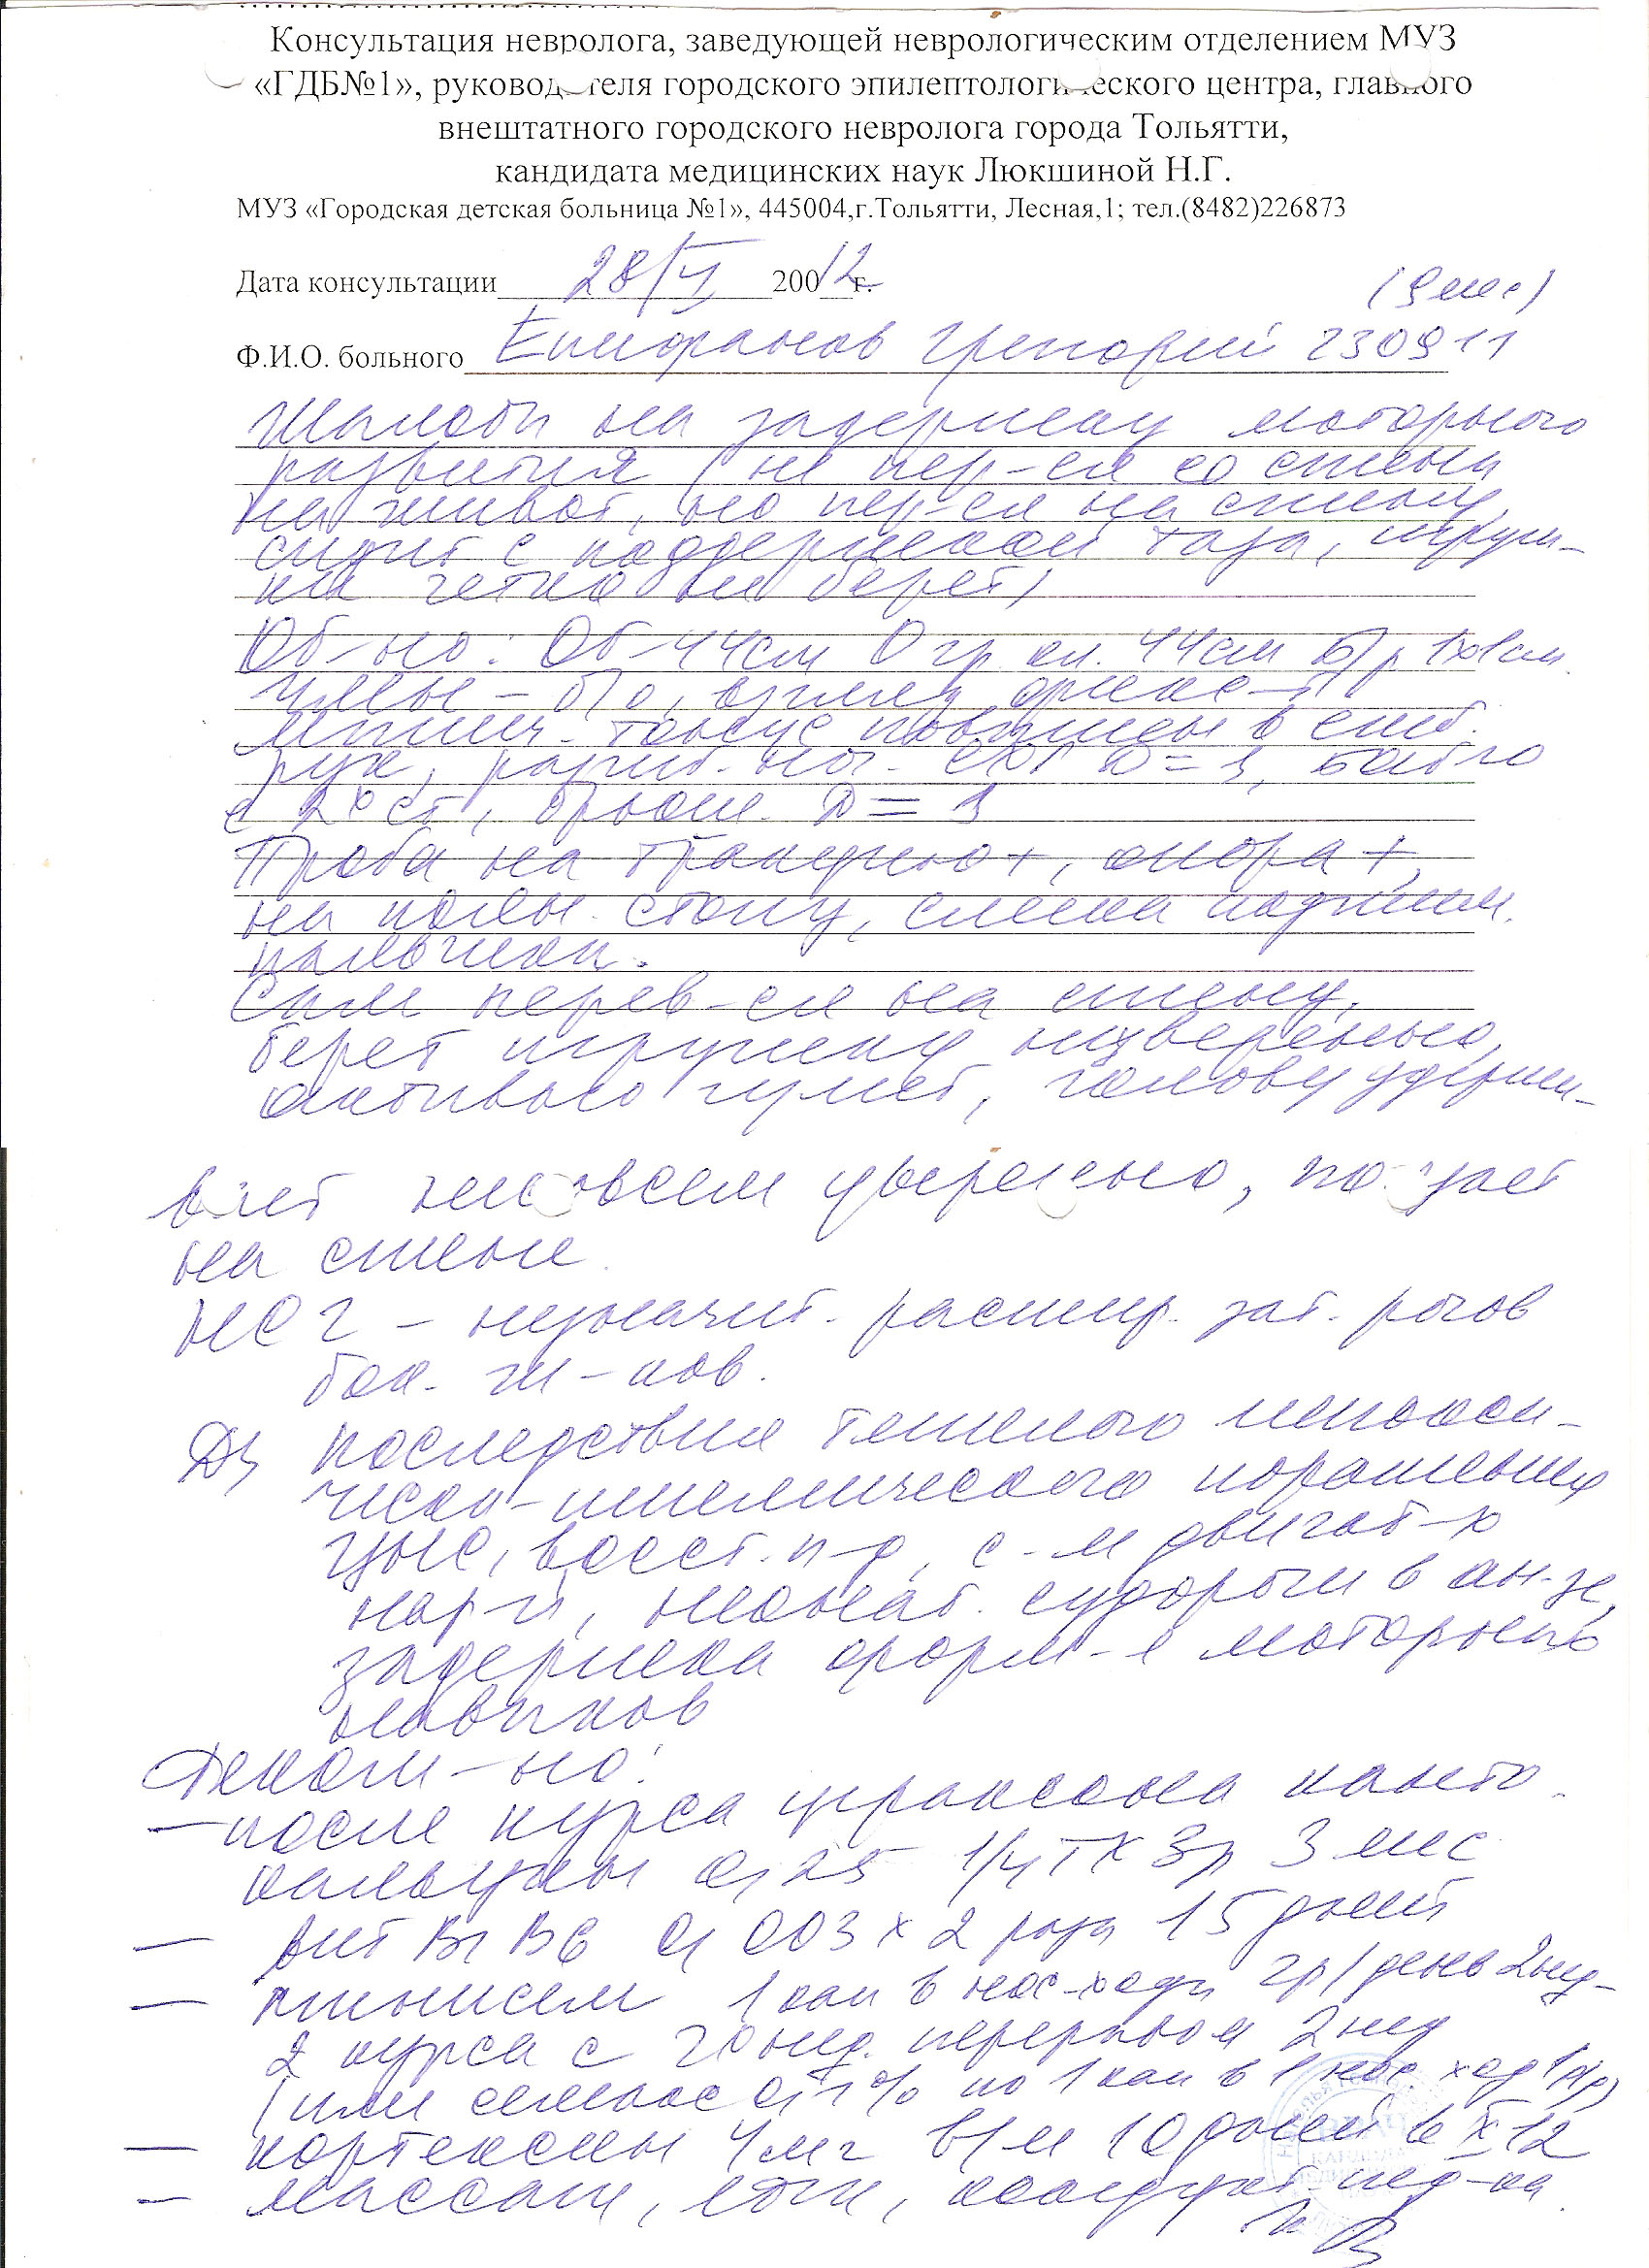 Консультация невролога, заведующей неврологическим отделением МУЗ
«ГДБ№1», руководителя городского эпилептологического центра, главного
внештатного городского невролога города Тольятти,
кандидата медицинских наук Люкшиной Н.Г.
МУЗ «Городская детская больница №1», 445004,г.Тольятти, Лесная,1; тел.(8482)226873
Дата консультации 28/VI 200 12 г. (9 мес)
Ф.И.О. больного Григорий 230911
Жалобы на задержку моторного
развития (не пер-ся со спины
на живот, но пер-ся на спину,
сидит с поддержкой таза, игруш-
ки четко не берет)
Об-но: Об-44см О гр кл. 44см Б/р 1х1см
ЧМН - б/о, взгляд фикс-т
Мышеч. тонус повышен в сгиб.
рук, разгиб. ног. СХР D=S,
с 2х ст, брюшн. D=S
Проба на тракцию+, опора+,
на полн. стопу, слегка поджим.
пальчики.
Сам перев-ся на спину,
берет игрушку неуверенно,
активно гулит, голову удержи-
вает не совсем уверенно, ползает
на спине
НСГ - незначит. расшир. зат. рогов
бок. ж-ков.
Дз Последствия тяжелого гипокси-
чески-ишемического поражения
ЦНС, восст. п-д, с-м двигат-х
нар-й, неонат. судороги в ан-зе,
задержка форм-я моторных
навыков
Реком-но:
- после курса панто-
кальцин 0,25 1/4т х 3р 3 мес
- вит В1 В6 0,003 х 2 раза 15 дней
- минисем 1 кап в нос. ходы 2р/день 2нед-
2 курса с 2х нед. перерывом 2 нед
(или семакс 0,1% по 1 кап в 1 нос. ход 1р/д)
- кортексин 4мг в/м 10 дней в X 12
- массаж, ЛФК, кондукт. пед-ка.